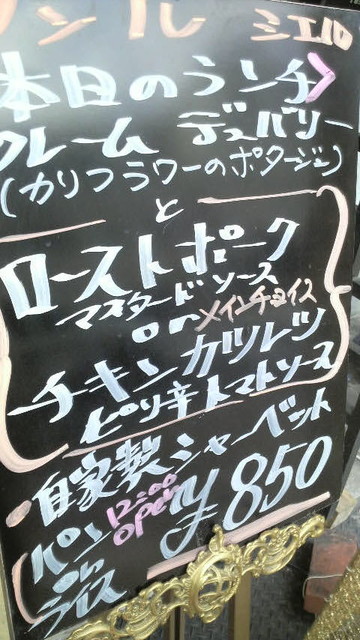 ミエル
本日のランチ
クレーム デュバリー
(カリフラワーのポタージュ)
と
ローストポーク
マスタードソース
or メインチョイス
チキンカツレツ
ピリ辛トマトソース
・自家製シャーベット
パン
or
ライス
12:00
open
¥850